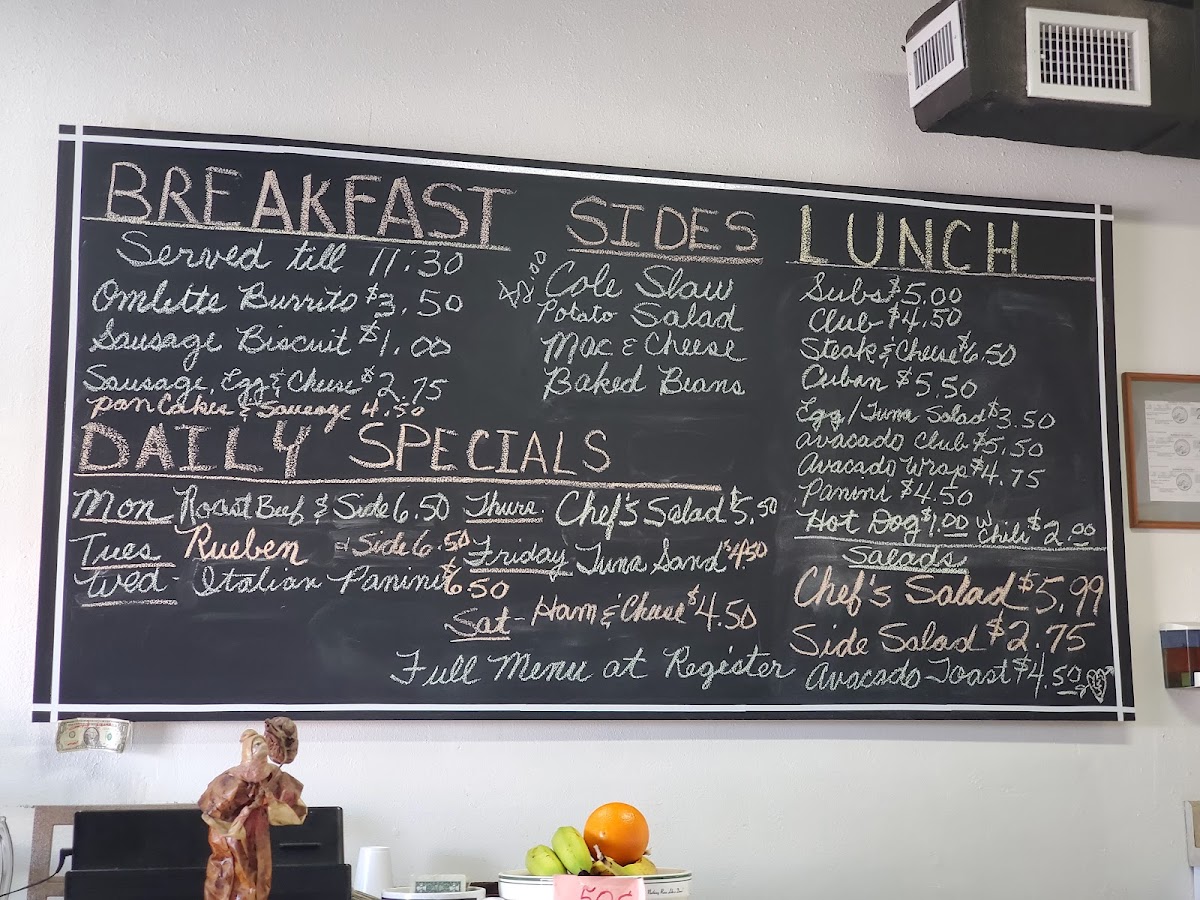 BREAKFAST
Served till 11:30
Omlette Burrito $3.50
Sausage Biscuit $1.00
Sausage, Egg & Cheese $2.75
Pancakes & Sausage 4.50
SIDES
$2.00
Cole Slaw
Potato Salad
Mac & Cheese
Baked Beans
LUNCH
Subs $5.00
Club $4.50
Steak & Cheese $6.50
Cuban $5.50
Egg/Tuna Salad $3.50
Avacado Club $5.50
Avacado Wrap $4.75
Panini $4.50
Hot Dog $1.00 w/ Chili $2.00
Salads
Chef's Salad $5.99
Side Salad $2.75
Avacado Toast $4.50
DAILY SPECIALS
Mon Roast Beef & Side 6.50
Tues Rueben & Side 6.50
Wed - Italian Panini $6.50
Thurs. Chef's Salad $5.50
Friday Tuna Sand $4.50
Sat - Ham & Cheese $4.50
Full Menu at Register
50¢